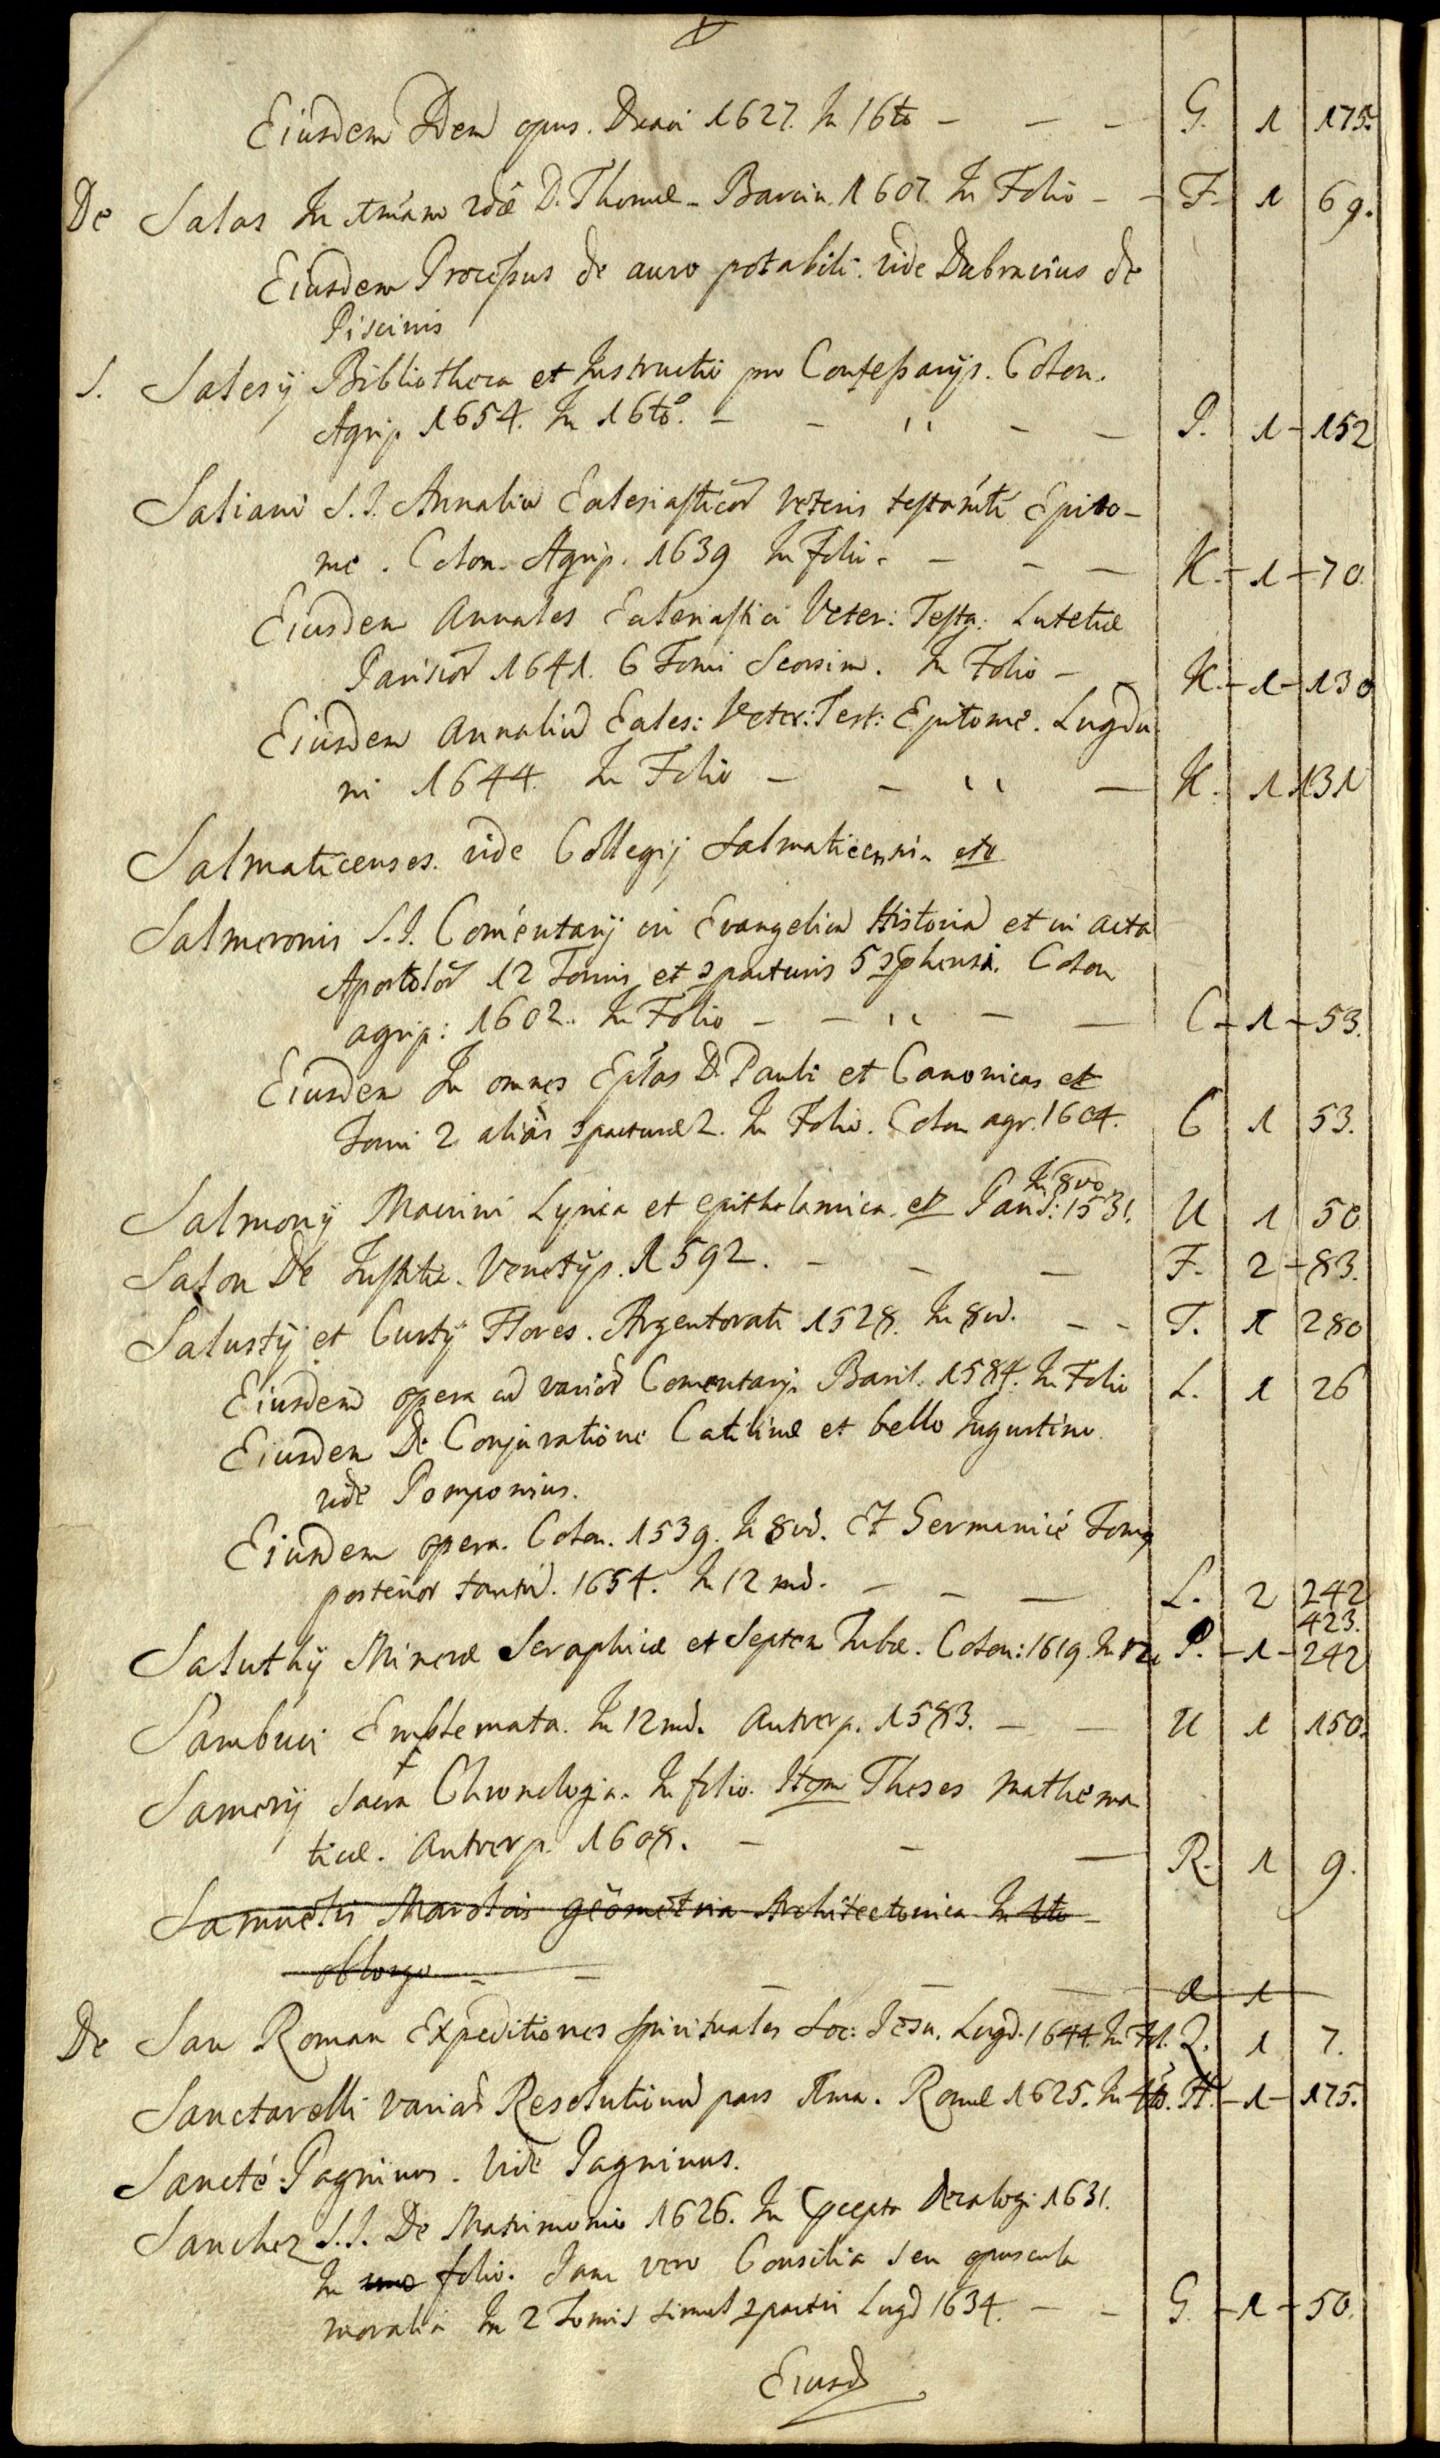 Eiusdem Idem opus. Duaci 1627. In 16to - - - G. 1 175.
De Salas In 1mam 2dæ D. Thomæ - Barcin. 1607. In Folio - - F. 1 69.
Eiusdem Processus de auro potabili. vide Dubravius de
Piscinis
S. Salesij Bibliotheca et Instructio pro Confessarijs. Colon.
Agrip. 1654. In 16to. - - '' - - P. 1 - 152
Saliani S.J. Annaliu Eclesiasticor Veteris testamti Epito-
me. Colon. Agrip. 1639 In folio. - - - K. - 1 - 70.
Eiusdem Annales Eclesiastici Veter: Testa: Lutetiæ
Parisior 1641. 6 Tomi Seorsim. In Folio - - K. - 1 - 130
Eiusdem Annaliu Ecles: Veter: Test: Epitome. Lugdu
ni 1644. In Folio - - '' - K. 1 131
Salmaticenses. vide Collegij Salmaticensis etc
Salmeronis S.J. Comentarij in Evangelica Historia et in acta
Apostolor 12 Tomis et 5 Colon
agrip: 1602. In Folio - - '' - - C - 1 - 53.
Eiusdem In omnes Eptas D. Pauli et Canonicas et
Tomi 2 aliàs 2. In Folio. Colon agr. 1604. C 1 53.
In 8vo
Salmonij Macrini Lyrica et epithalamica et Paris: 1531. U 1 50
Salon De Iustitia. Venetijs. 1592. - - - F. 2 - 83.
Salustij et Curtij Flores. Argentorati 1528. In 8vo. - - T. 1 280
Eiusdem opera cu varior Comentarij. Basil. 1584. In Folio L. 1 26
Eiusdem De Conjuratione Catilinæ et bello Iugurtino.
vide Pomponius.
Eiusdem opera. Colon. 1539. In 8vo. Et Germanicè Tomus
posterior tantu. 1654. In 12mo. - - - L. 2 242
423.
Saluthij Mineræ Seraphicæ et Septem Tubæ. Colon: 1619. In 12. P. - 1 - 242
Sambuci Emblemata. In 12mo. Antverp. 1583. - - U 1 150.
Samerij Sacra Chronologia. In folio. Item Theses Mathema
ticæ. Antverp. 1608. - - - R. 1 9.
Samuelis Marolois geometria Architectonica In 4to -
oblongo - - - - - a 1
De San Roman Expeditiones spirituales Soc: Jesu. Lugd. 1644. In Fol. Q. 1 7.
Sanctarelli variar Resolutionu pars 1ma. Romæ 1625. In 4to. H. - 1 - 175.
Sancte Pagninus. Vide Pagninus.
Sanchez S.J. De Matrimonio 1626. In Decalogi 1631.
In uno folio. Jam vero Consilia seu opuscula
moralia In 2 Tomis simul Lugd 1634. - - G. - 1 - 50.
Eiusd